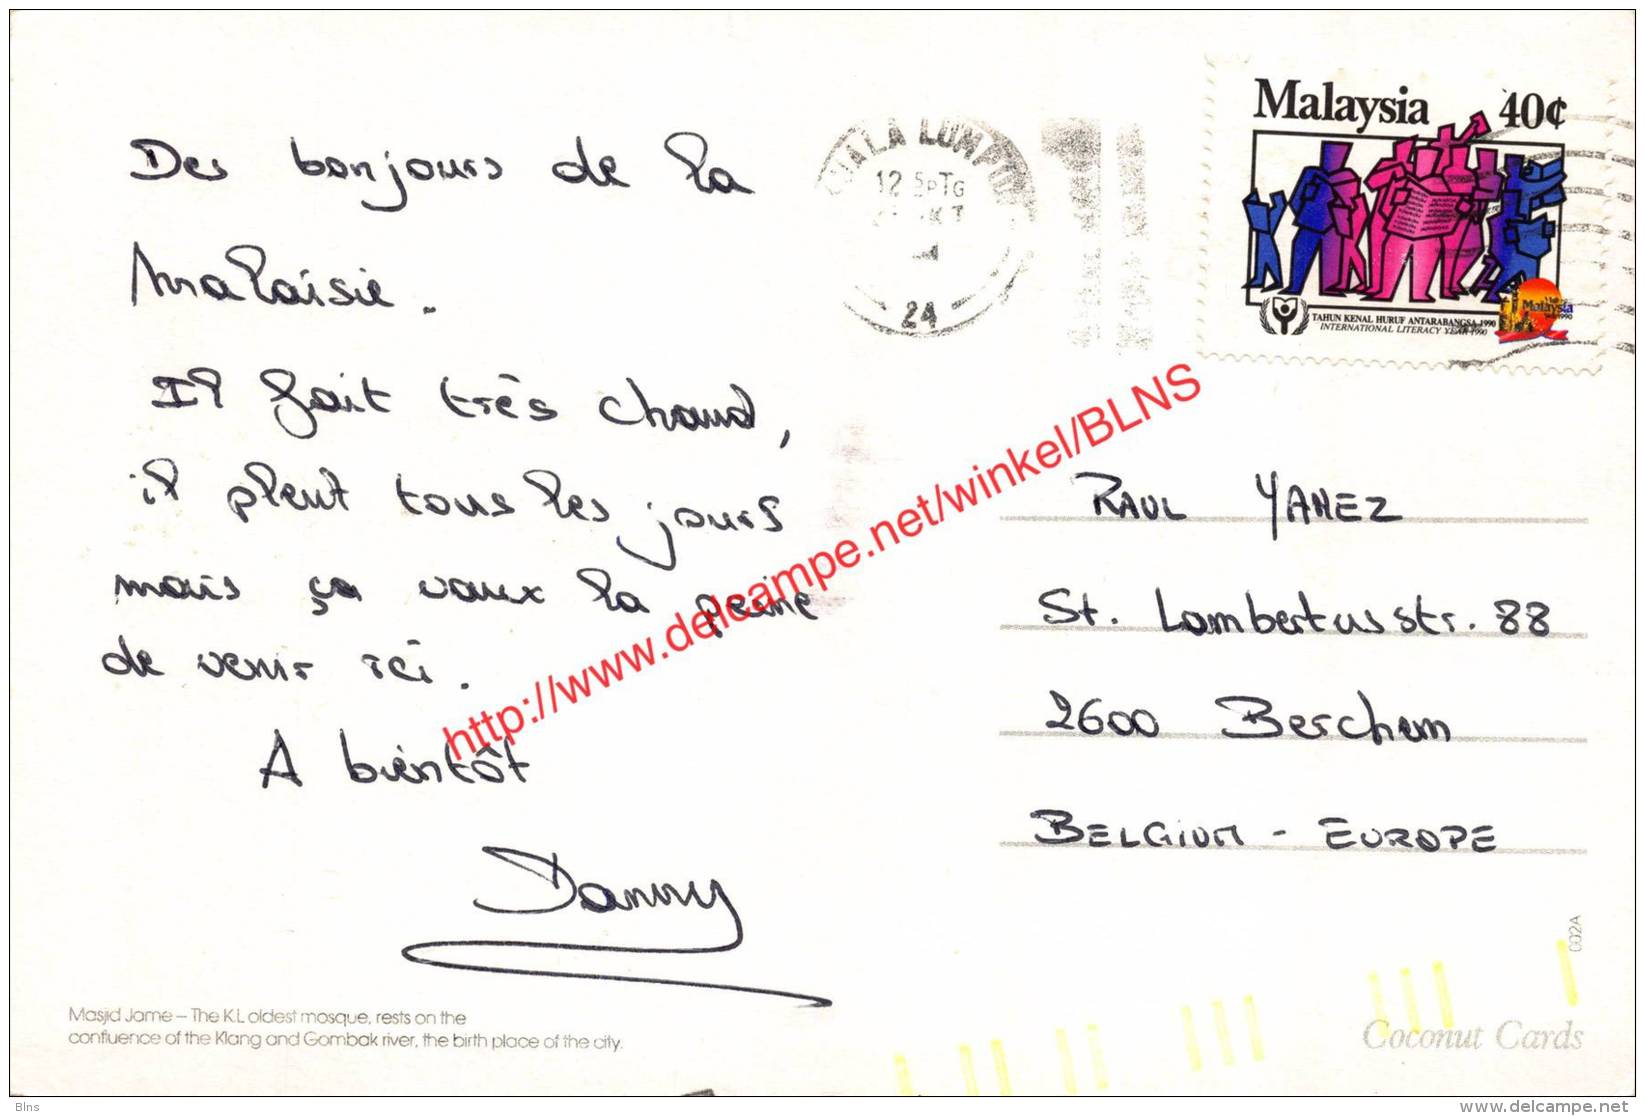 Des bonjours de la
Malaisie.
Il fait très chaud,
il pleut tous les jours
mais ça vaux la peine
de venir ici.
A bientôt
Danny
Masjid Jame – The K.L oldest mosque, rests on the
confluence of the Klang and Gombak river, the birth place of the city.
KUALA LUMPUR
12 5PTG
24
Malaysia 40¢
TAHUN KENAL HURUF ANTARABANGSA 1990
INTERNATIONAL LITERACY YEAR 1990
Malaysia
RAUL YANEZ
St. Lambertusstr. 88
2600 Berchem
BELGIUM - EUROPE
002A
Coconut Cards
http://www.delcampe.net/winkel/BLNS
Blns
www.delcampe.net